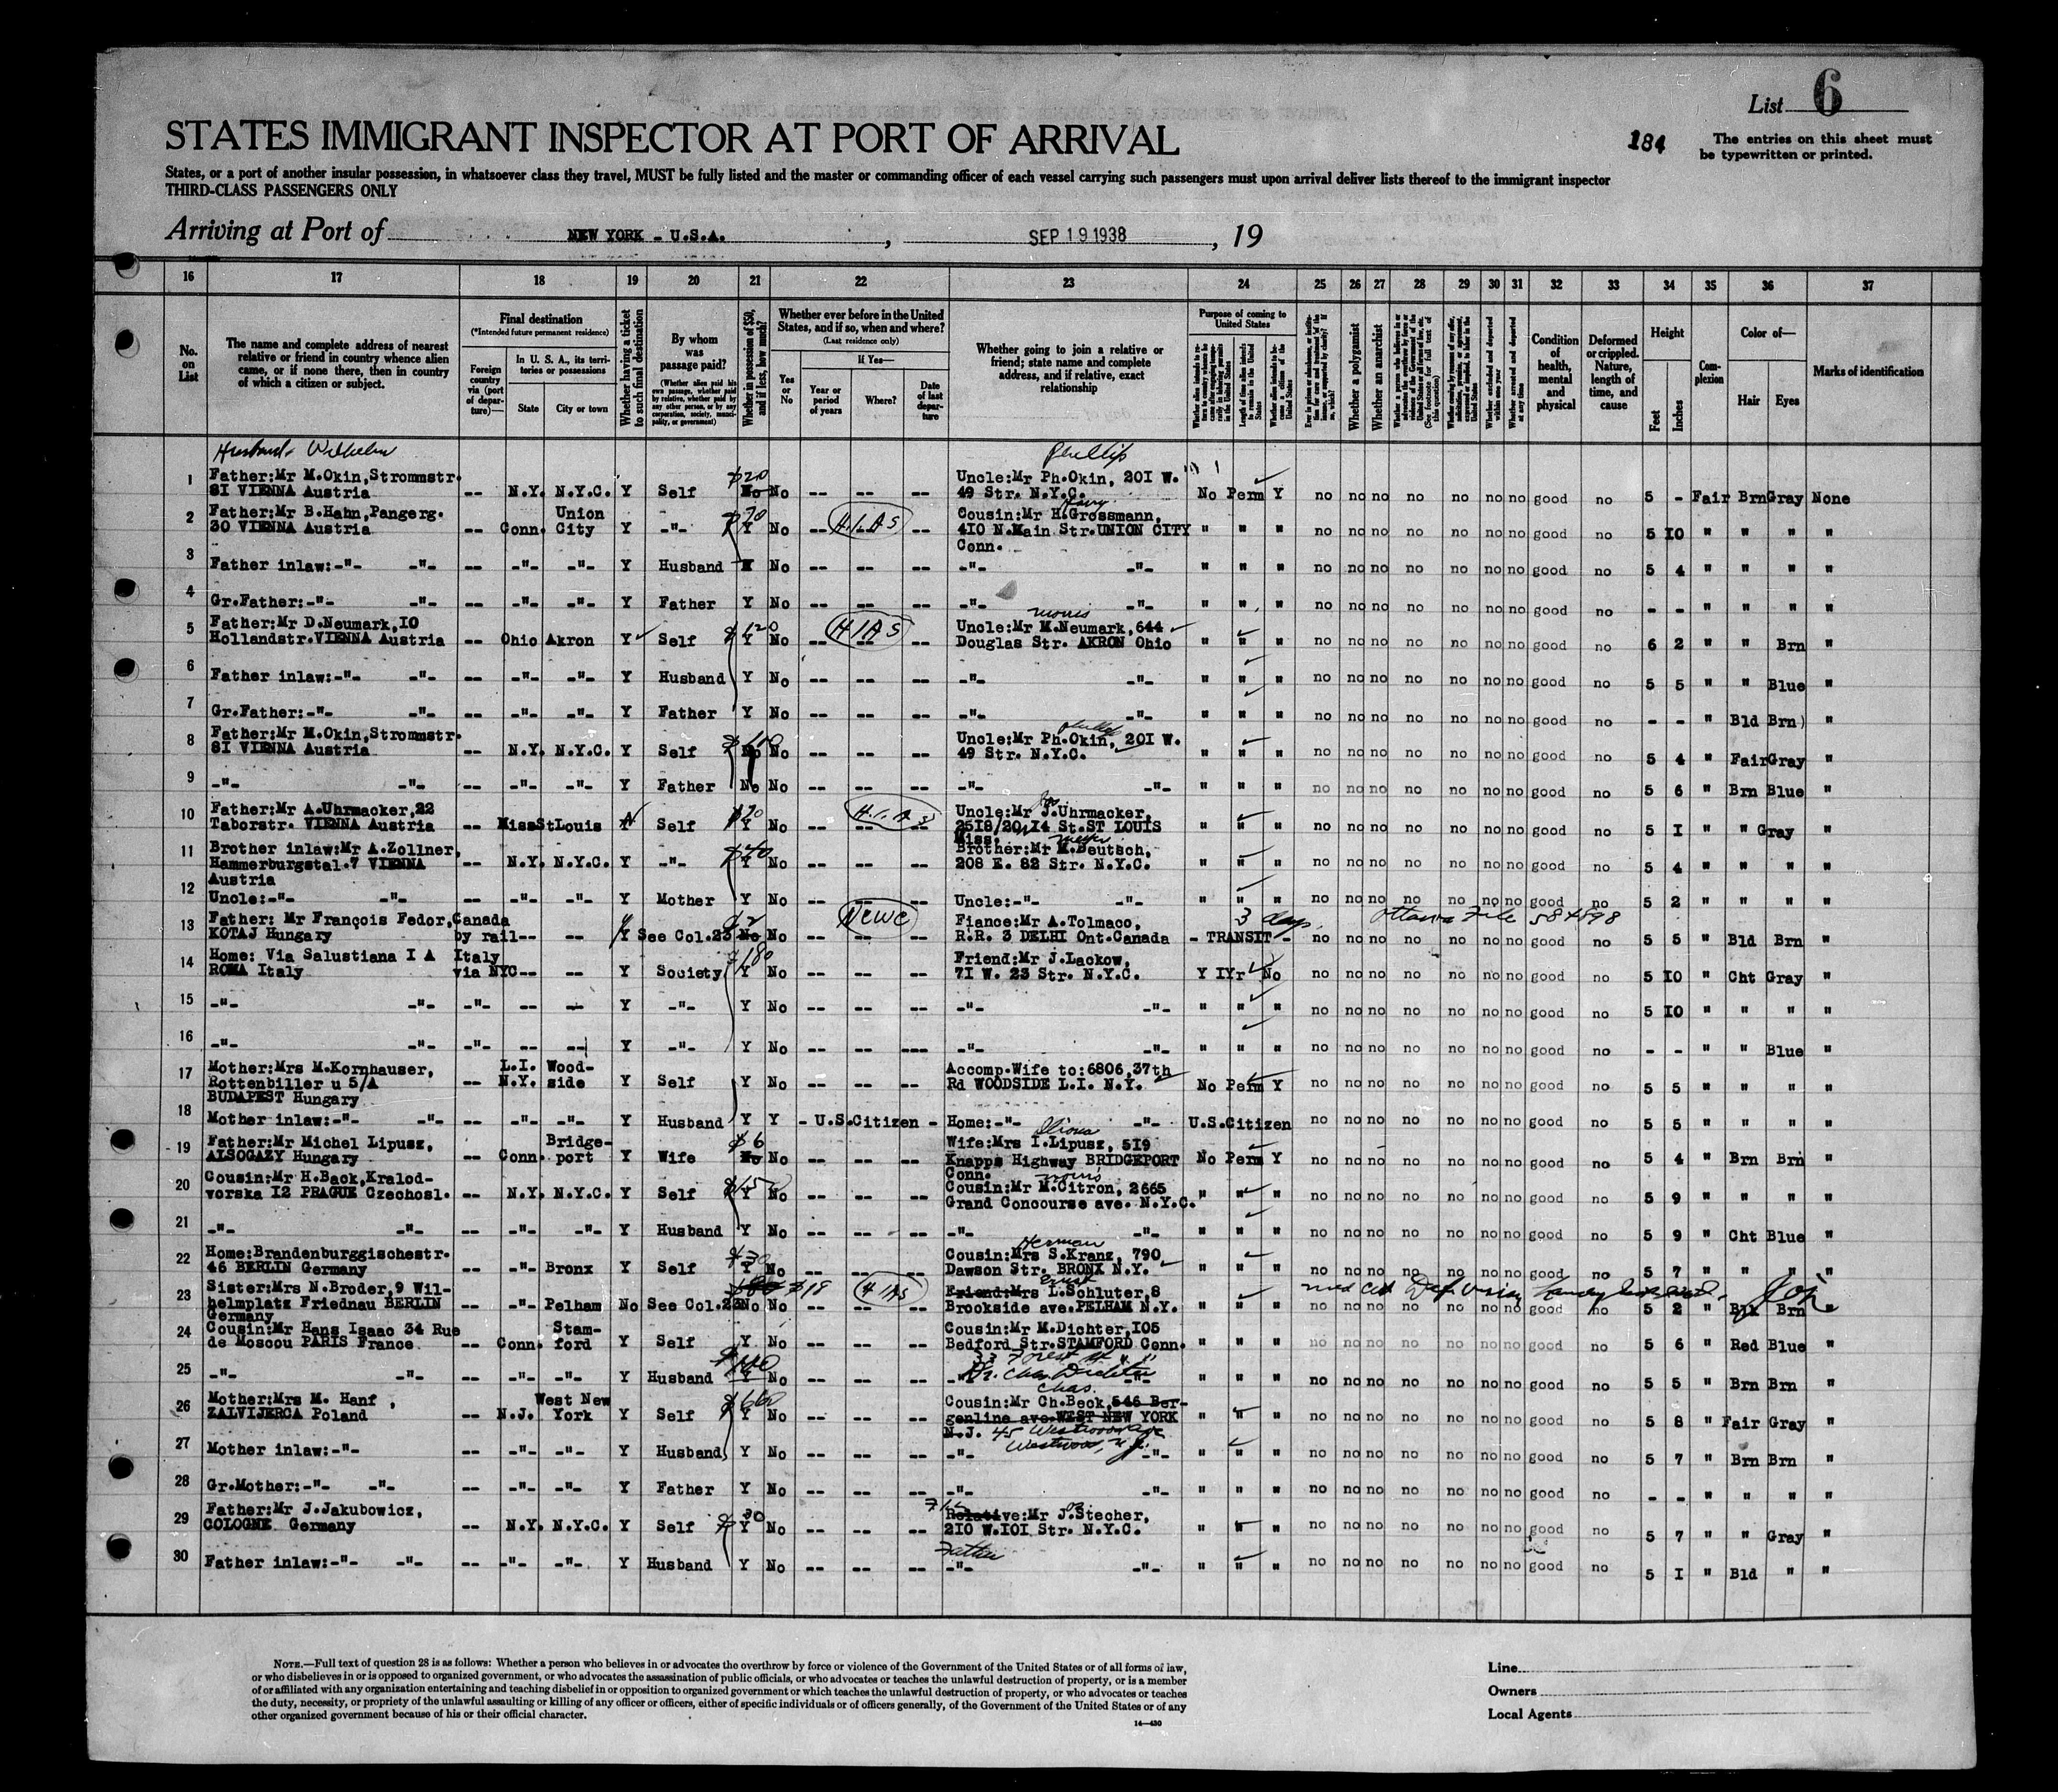 List 6
184
The entries on this sheet must
be typewritten or printed.
STATES IMMIGRANT INSPECTOR AT PORT OF ARRIVAL
States, or a port of another insular possession, in whatsoever class they travel, MUST be fully listed and the master or commanding officer of each vessel carrying such passengers must upon arrival deliver lists thereof to the immigrant inspector
THIRD-CLASS PASSENGERS ONLY
Arriving at Port of NEW YORK - U.S.A. , SEP 19 1938 , 19
16 17 18 19 20 21 22 23 24 25 26 27 28 29 30 31 32 33 34 35 36 37
No. on List
The name and complete address of nearest
relative or friend in country whence alien
came, or if none there, then in country
of which a citizen or subject.
Final destination
(*Intended future permanent residence)
Foreign country via (port of departure)—
In U. S. A., its territories or possessions
State
City or town
Whether having a ticket to such final destination
By whom was passage paid?
(Whether alien paid his own passage, whether paid by relative, whether paid by any other person, or by any corporation, society, municipality, or government)
Whether in possession of $50, and if less, how much?
Whether ever before in the United
States, and if so, when and where?
(Last residence only)
Yes or No
If Yes—
Year or period of years
Where?
Date of last departure
Whether going to join a relative or
friend; state name and complete
address, and if relative, exact
relationship
Purpose of coming to United States
Length of time alien intends to remain in the United States
Whether alien intends to become a citizen of the United States
Whether a polygamist
Whether an anarchist
Whether excluded and deported within one year
Whether arrested and deported at any time
Condition of health, mental and physical
Deformed or crippled. Nature, length of time, and cause
Height
Feet
Inches
Complexion
Color of—
Hair
Eyes
Marks of identification
Husband - Wilhelm
Phillip
1 Father:Mr M.Okin,Strommstr. -- N.Y. N.Y.C. Y Self $20 No No -- -- -- Uncle:Mr Ph.Okin, 20I W. No Perm Y no no no no no no no good no 5 - Fair Brn Gray None
8I VIENNA Austria 49 Str. N.Y.C.
2 Father:Mr B.Hahn,Pangerg. -- Conn. Union City Y -"- Y No -- H.I.A.S -- Cousin:Mr H.Grossmann, " " " no no no no no no no good no 5 I0 " " " "
30 VIENNA Austria 4I0 N.Main Str.UNION CITY
Conn.
3 Father inlaw:-"- -"- -- -"- -"- Y Husband No -- -- -- -"- -"- " " " no no no no no no no good no 5 4 " " " "
4 Gr.Father:-"- -"- -- -"- -"- Y Father Y No -- -- -- -"- -"- " " " no no no no no no no good no - - " " " "
Morris
5 Father:Mr D.Neumark,I0 -- Ohio Akron Y Self $120 Y No -- HIAS -- Uncle:Mr M.Neumark,644 " " " no no no no no no no good no 6 2 " " Brn "
Hollandstr.VIENNA Austria Douglas Str. AKRON Ohio
6 Father inlaw:-"- -"- -- -"- -"- Y Husband Y No -- -- -- -"- -"- " " " no no no no no no no good no 5 5 " " Blue "
7 Gr.Father:-"- -"- -- -"- -"- Y Father Y No -- -- -- -"- -"- " " " no no no no no no no good no - - " Bld Brn "
8 Father:Mr M.Okin,Strommstr. -- N.Y. N.Y.C. Y Self No No -- -- -- Uncle:Mr Ph.Okin, 20I W. " " " no no no no no no no good no 5 4 " Fair Gray "
8I VIENNA Austria 49 Str. N.Y.C.
9 -"- -"- -- -"- -"- Y Father No No -- -- -- -"- -"- " " " no no no no no no no good no 5 6 " Brn Blue "
10 Father:Mr A.Uhrmacker,22 -- Miss StLouis Self $20 Y No -- H.I.A.S -- Uncle:Mr J.Uhrmacker, " " " no no no no no no no good no 5 I " " Gray "
Taborstr. VIENNA Austria 25I8/20,I4 St.ST LOUIS
Miss.
11 Brother inlaw:Mr A.Zollner, -- N.Y. N.Y.C. Y -"- Y No -- -- -- Brother:Mr M.Deutsch, " " " no no no no no no no good no 5 4 " " " "
Hammerburgstal.7 VIENNA 208 E. 82 Str. N.Y.C.
Austria
12 Uncle:-"- -"- -- -"- -"- Y Mother Y No -- -- -- Uncle:-"- -"- " " " no no no no no no no good no 5 2 " " " "
3 days Ottawa File 584898
13 Father: Mr François Fedor, Canada by rail -- -- Y See Col.23 $2 No No -- -- -- Fiance:Mr A.Tolmaco, - TRANSIT - no no no no no no no good no 5 5 " Bld Brn "
KOTAJ Hungary R.R. 3 DELHI Ont.Canada
14 Home: Via Salustiana I A Italy via NYC -- -- Y Society $180 Y No -- -- -- Friend:Mr J.Lackow, Y IYr No no no no no no no no good no 5 I0 " Cht Gray "
ROMA Italy 7I W. 23 Str. N.Y.C.
15 -"- -"- -"- -- -- Y -"- Y No -- -- -- -"- -"- " " " no no no no no no no good no 5 I0 " " " "
16 -"- -"- -"- -- -- Y -"- Y No -- -- --- -"- -"- " " " no no no no no no no good no - - " " Blue "
17 Mother:Mrs M.Kornhauser, -- L.I. N.Y. Wood-side Y Self Y No -- -- -- Accomp.Wife to:6806,37th No Perm Y no no no no no no no good no 5 5 " " " "
Rottenbiller u 5/A Rd WOODSIDE L.I. N.Y.
BUDAPEST Hungary
18 Mother inlaw:-"- -"- -- -"- -"- Y Husband Y Y - U.S.Citizen - Home:-"- -"- U.S.Citizen no no no no no no no good no 5 5 " " " "
19 Father:Mr Michel Lipusz, -- Conn. Bridge-port Y Wife $6 No No -- -- -- Wife:Mrs I.Lipusz, 5I9 No Perm Y no no no no no no no good no 5 4 " Brn Brn "
ALSOGAZY Hungary Knapps Highway BRIDGEPORT
Conn.
Morris
20 Cousin:Mr H.Back,Kralod- -- N.Y. N.Y.C. Y Self Y No -- -- -- Cousin:Mr M.Citron, 2665 " " " no no no no no no no good no 5 9 " " " "
vorska I2 PRAGUE Czechosl. Grand Concourse ave. N.Y.C.
21 -"- -"- -- -"- -"- Y Husband Y No -- -- -- -"- -"- " " " no no no no no no no good no 5 9 " Cht Blue "
Herman
22 Home:Brandenburggischestr. -- -"- Bronx Y Self $30 Y No -- -- -- Cousin:Mrs S.Kranz, 790 " " " no no no no no no no good no 5 7 " " " "
46 BERLIN Germany Dawson Str. BRONX N.Y.
23 Sister:Mrs N.Broder,9 Wil- -- -"- Pelham No See Col.23 $18 No No -- HIAS -- Friend:Mrs L.Schluter,8 " " " no no no no no no no good no 5 2 " Blk Brn "
helmplatz Friednau BERLIN Brookside ave.PELHAM N.Y.
Germany
24 Cousin:Mr Hans Isaac 34 Rue -- Conn. Stam-ford Y Self Y No -- -- -- Cousin:Mr M.Dichter,I05 " " " no no no no no no no good no 5 6 " Red Blue "
de Moscou PARIS France Bedford Str.STAMFORD Conn.
25 -"- -"- -- -"- -"- Y Husband Y No -- -- -- Dr. Chas Dichter -"- " " " no no no no no no no good no 5 5 " Brn Brn "
Chas.
26 Mother:Mrs M. Hanf , -- N.J. West New York Y Self $660 Y No -- -- -- Cousin:Mr Ch.Beck,546 Ber- " " " no no no no no no no good no 5 8 " Fair Gray "
ZALVIJERCA Poland genline ave.WEST NEW YORK
N.J. 45 Westwood Ave
Westwood, N.J.
27 Mother inlaw:-"- -- -"- -"- Y Husband Y No -- -- -- -"- -"- " " " no no no no no no no good no 5 7 " Brn Brn "
28 Gr.Mother:-"- -"- -- -"- -"- Y Father Y No -- -- -- -"- -"- " " " no no no no no no no good no - - " " " "
29 Father:Mr J.Jakubowicz, -- N.Y. N.Y.C. Y Self $30 Y No -- -- -- Relative:Mr J.Stecher, " " " no no no no no no no good no 5 7 " " Gray "
COLOGNE Germany 2I0 W.I0I Str. N.Y.C.
Father
30 Father inlaw:-"- -"- -- -"- -"- Y Husband Y No -- -- -- -"- -"- " " " no no no no no no no good no 5 I " Bld " "
NOTE.—Full text of question 28 is as follows: Whether a person who believes in or advocates the overthrow by force or violence of the Government of the United States or of all forms of law,
or who disbelieves in or is opposed to organized government, or who advocates the assassination of public officials, or who advocates or teaches the unlawful destruction of property, or is a member
of or affiliated with any organization entertaining and teaching disbelief in or opposition to organized government or which teaches the unlawful destruction of property, or who advocates or teaches
the duty, necessity, or propriety of the unlawful assaulting or killing of any officer or officers, either of specific individuals or of officers generally, of the Government of the United States or of any
other organized government because of his or their official character.
14—430
Line
Owners
Local Agents